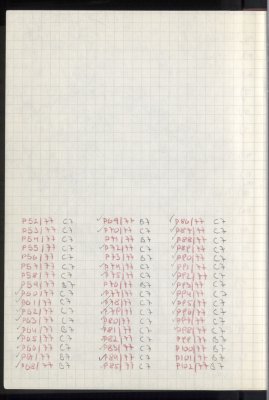 P52/77 C7
P53/77 C7
P54/77 C7
P55/77 C7
P56/77 C7
P57/77 C7
P58/77 C7
P59/77 B7
✓P60/77 C7
✓P61/77 C7
✓P62/77 C7
✓P63/77 C7
✓P64/77 B7
✓P65/77 C7
✓P66/77 B7
✓P67/77 B7
✓P68/77 B7
✓P69/77 B7
✓P70/77 C7
P71/77 B7
✓P72/77 C7
P73/77 B7
✓P74/77 C7
✓P75/77 C7
P76/77 B7
✓P77/77 C7
✓P78/77 C7
✓P79/77 C7
P80/77 C7
P81/77 C7
P82/77 C7
✓P83/77 C7
✓P84/77 C7
✓P85/77 C7
✓P86/77 C7
✓P87/77 C7
✓P88/77 C7
✓P89/77 C7
✓P90/77 C7
✓P91/77 C7
✓P92/77 C7
✓P93/77 C7
✓P94/77 C7
✓P95/77 C7
✓P96/77 C7
✓P97/77 C7
✓P98/77 C7
P99/77 B7
P100/77 B7
P101/77 B7
P102/77 B7